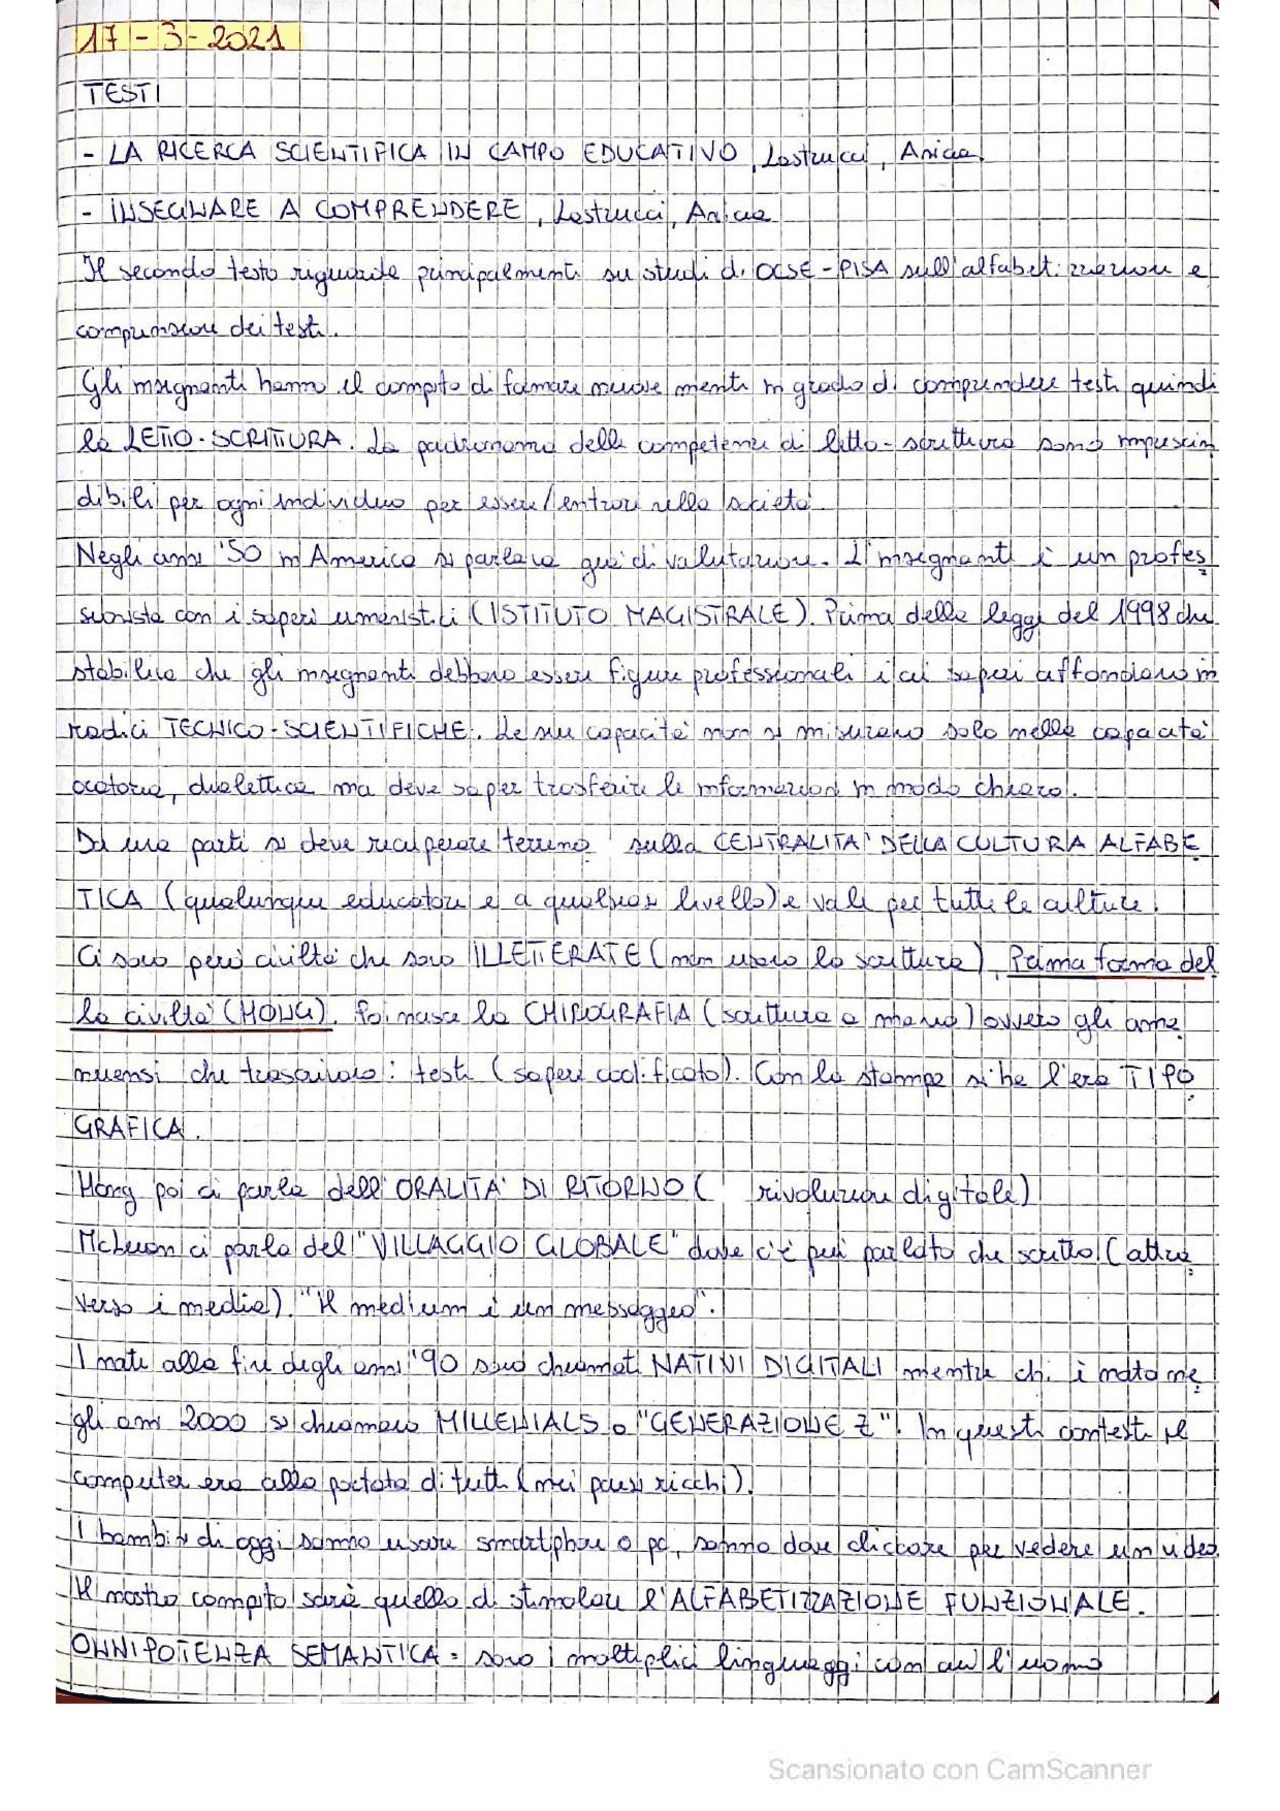 17-3-2021
TESTI
- LA RICERCA SCIENTIFICA IN CAMPO EDUCATIVO, Lastrucci, Anicia.
- INSEGNARE A COMPRENDERE, Lastrucci, Anicia
Il secondo testo riguarda principalmente su studi di OCSE-PISA sull'alfabetizzazione e
comprensione dei testi.
Gli insegnanti hanno il compito di formare nuove menti in grado di comprendere testi quindi
la LETTO-SCRITTURA. La padronanza delle competenze di letto-scrittura sono imprescin
dibili per ogni individuo per essere/entrare nella società.
Negli anni '50 in America si parlava già di valutazione. L'insegnante è un profes
sionista con i saperi umanistici (ISTITUTO MAGISTRALE). Prima della legge del 1998 che
stabilisce che gli insegnanti debbano essere figure professionali i cui saperi affondano in
radici TECNICO-SCIENTIFICHE. Le sue capacità non si misurano solo nella capacità
oratoria, dialettica ma deve saper trasferire le informazioni in modo chiaro.
Da una parte si deve recuperare terreno sulla CENTRALITA' DELLA CULTURA ALFABE
TICA (qualunque educatore e a qualsiasi livello) e vale per tutte le culture.
Ci sono però civiltà che sono ILLETTERATE (non usano la scrittura). Prima forma del
la civiltà (HONG). Poi nasce la CHIROGRAFIA (scrittura a mano) ovvero gli ama
nuensi che trascrivono: testi (sapere codificato). Con la stampa si ha l'era TIPO
GRAFICA.
Hong poi ci parla dell'ORALITA' DI RITORNO ( rivoluzione digitale)
McLuan ci parla del "VILLAGGIO GLOBALE" dove c'è più parlato che scritto (attra
verso i media). "Il medium è un messaggio".
I nati alla fine degli anni '90 sono chiamati NATIVI DIGITALI mentre chi è nato ne
gli anni 2000 si chiamano MILLENIALS o "GENERAZIONE Z". In questi contesti il
computer era alla portata di tutti (nei paesi ricchi).
I bambini di oggi sanno usare smartphone o pc, sanno dove cliccare per vedere un video.
Il nostro compito sarà quello di stimolare l'ALFABETIZZAZIONE FUNZIONALE.
ONNIPOTENZA SEMANTICA = sono i molteplici linguaggi con cui l'uomo
Scansionato con CamScanner